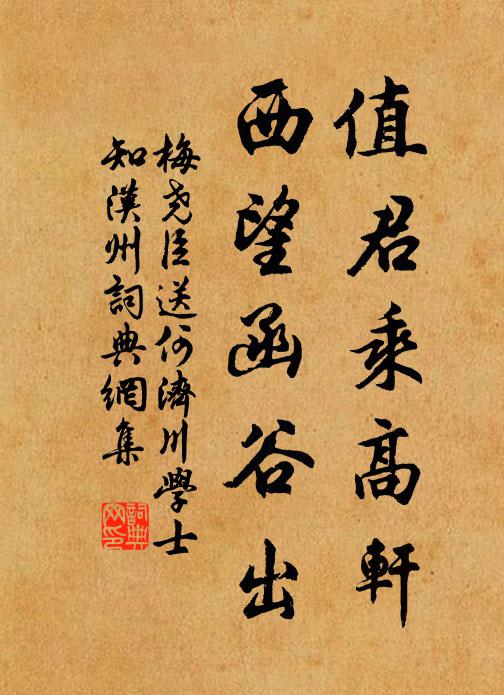 值君乘高軒
西望函谷出
梅尧臣送何濟川學士
知漢州詞典網集
詞典
网印